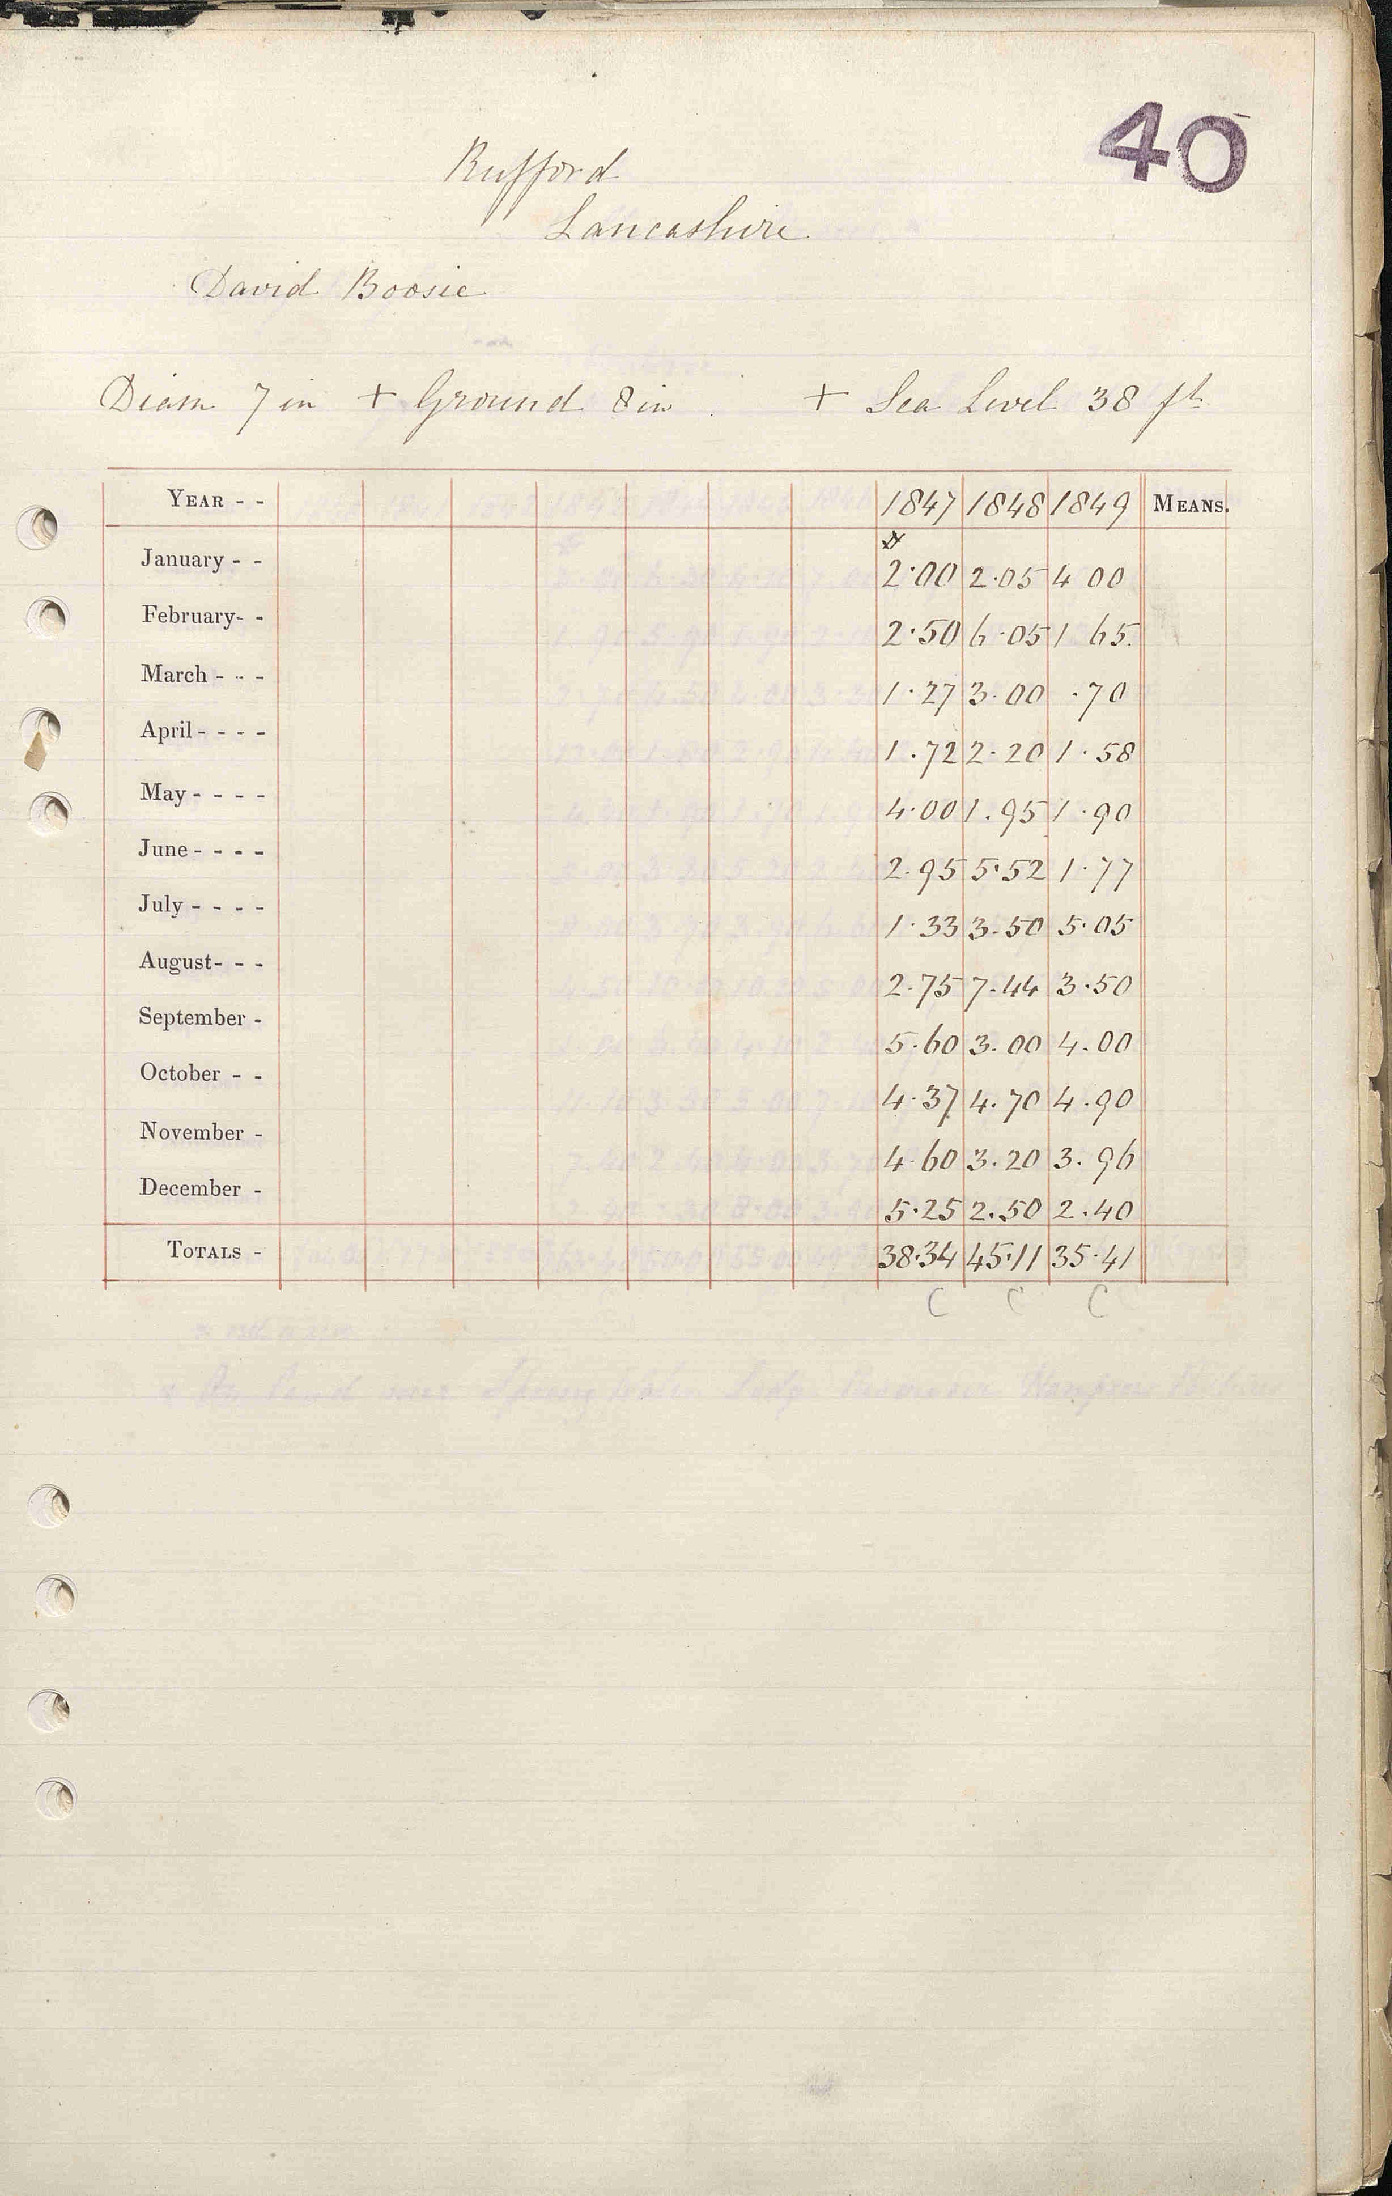 40
Rufford
Lancashire
David Boosie
Diam 7 in + Ground 8 in + Sea Level 38 ft
YEAR - - 1847 1848 1849 MEANS.
January - - 2·00 2·05 4 00
February- - 2·50 6·05 1 65.
March - - - 1·27 3·00 ·70
April - - - - 1·72 2·20 1·58
May - - - - 4·00 1·95 1·90
June - - - - 2·95 5·52 1·77
July - - - - 1·33 3·50 5·05
August- - - 2·75 7·44 3·50
September - 5·60 3·00 4·00
October - - 4·37 4·70 4·90
November - 4·60 3·20 3·96
December - 5·25 2·50 2·40
TOTALS - 38·34 45·11 35·41
C C C